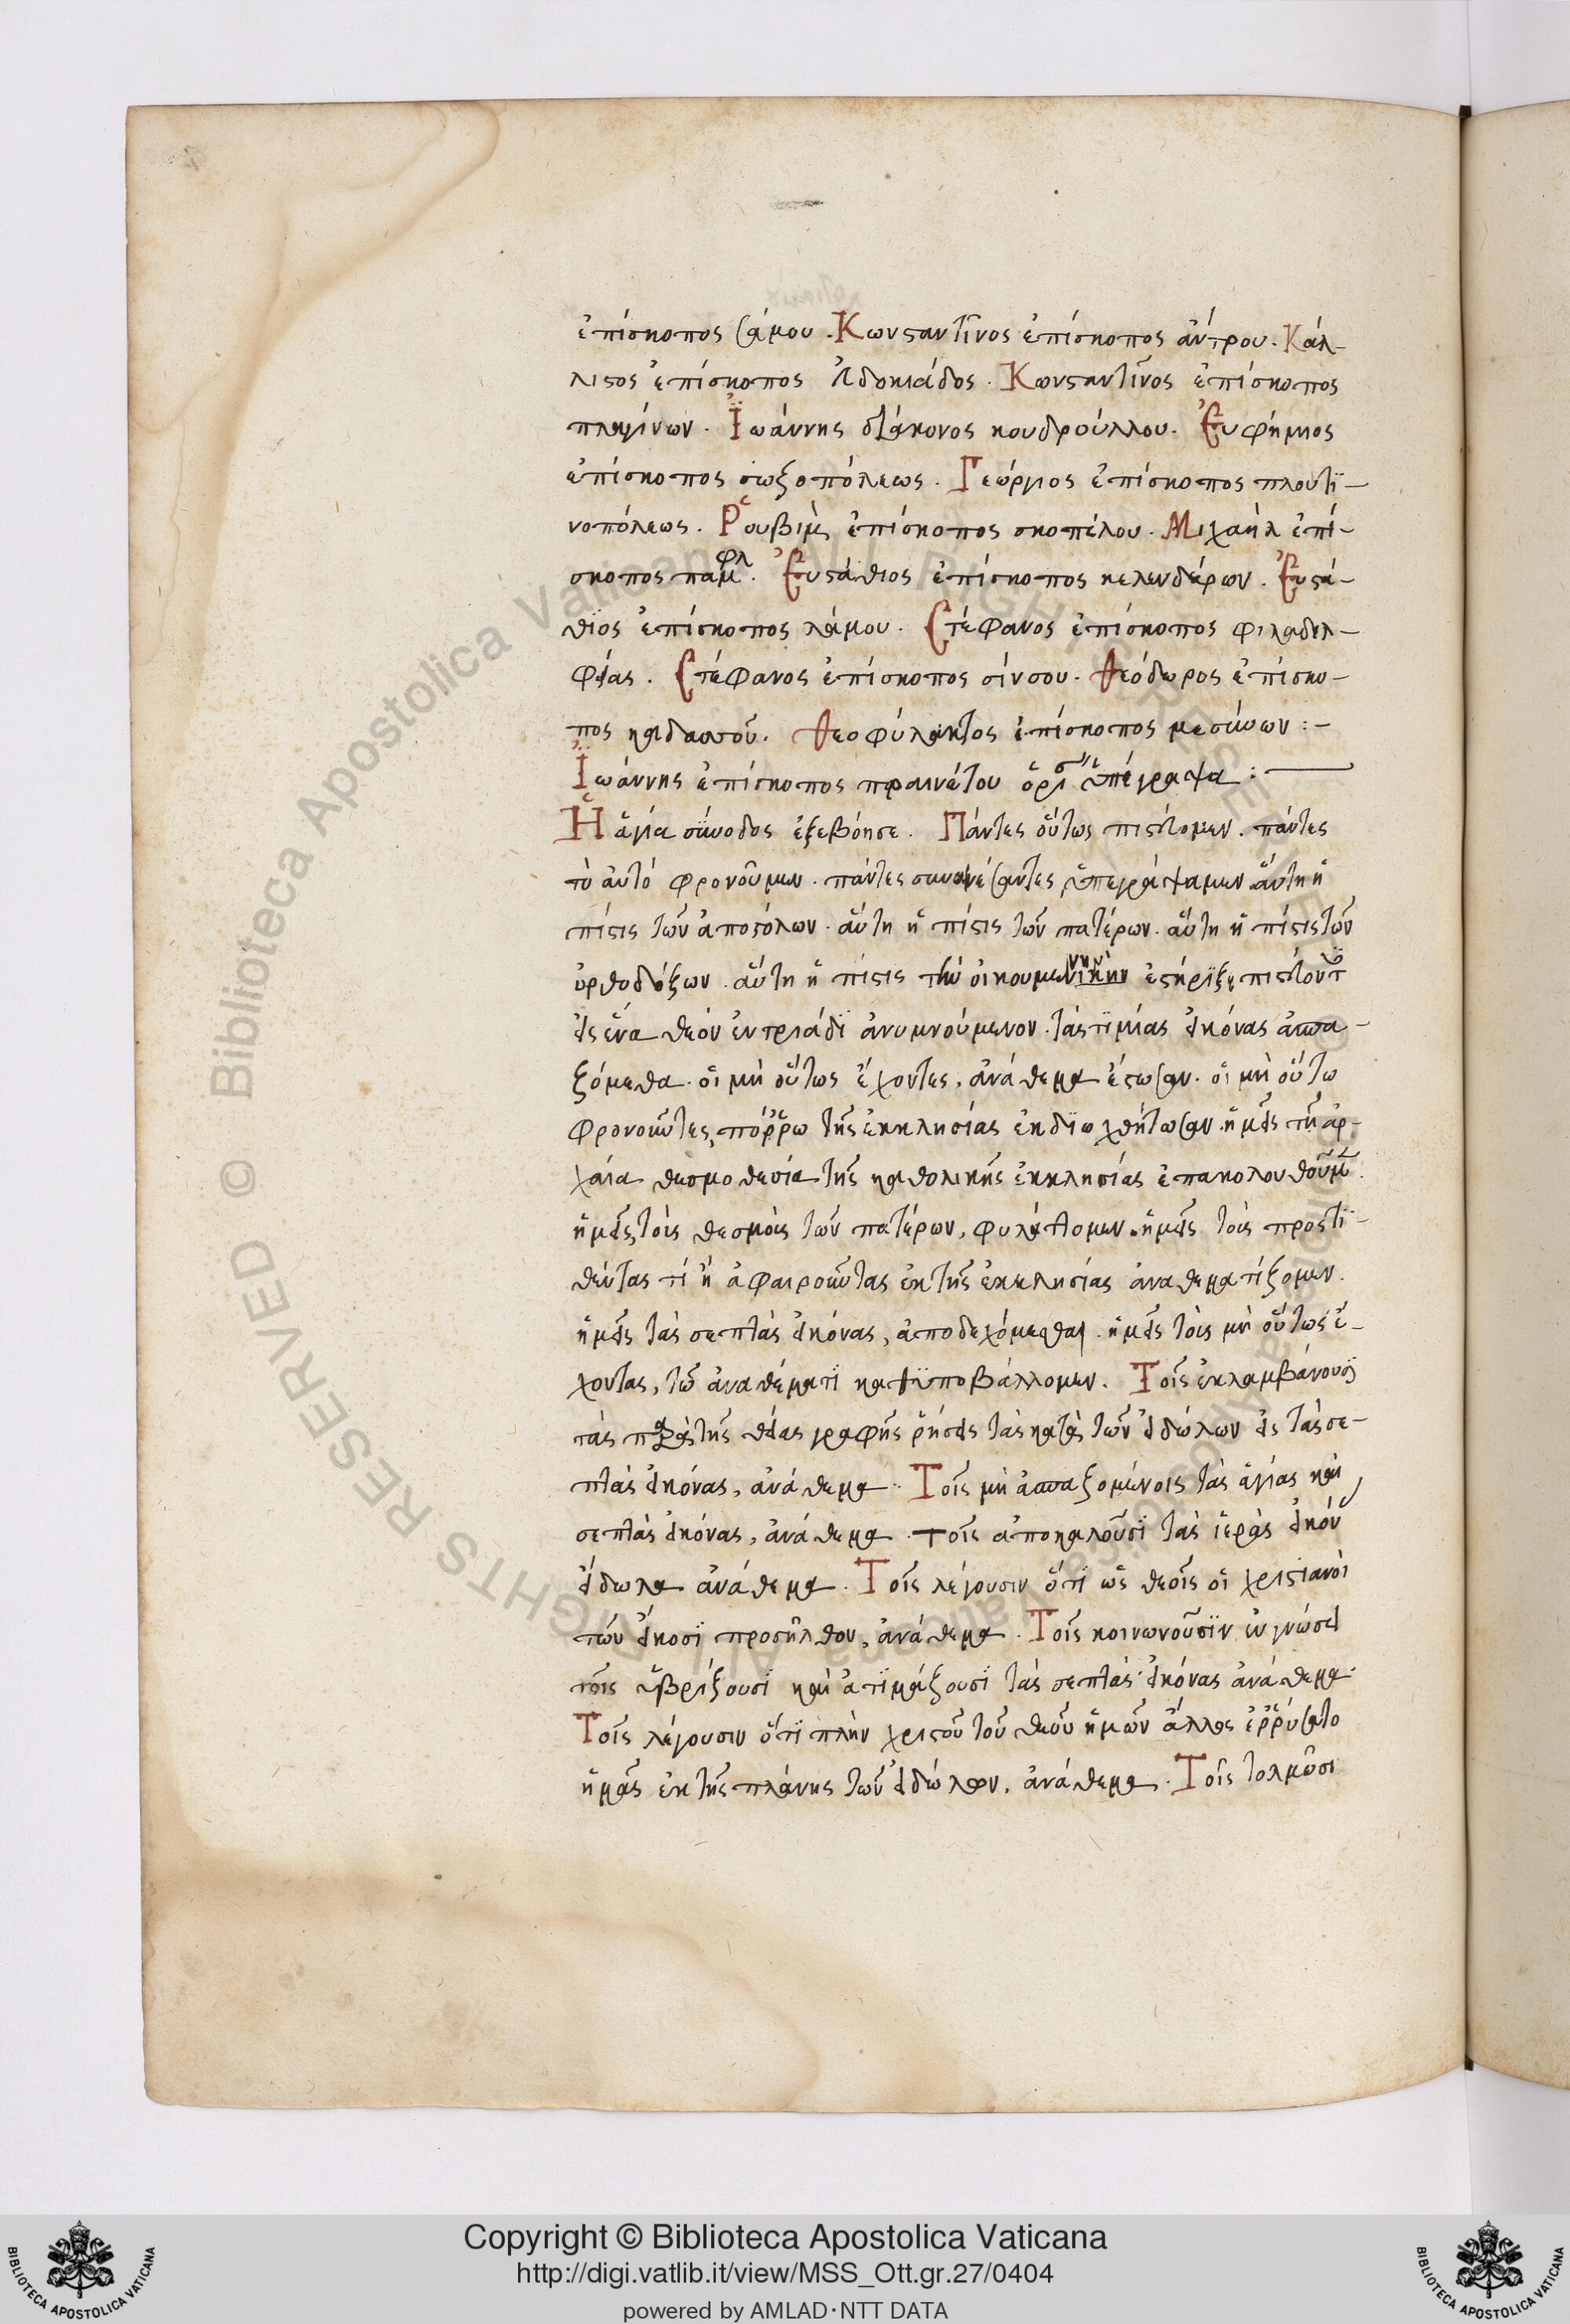 ἐπίσκοπος σάμου. Κωνσταντῖνος ἐπίσκοπος ἄντρου. Κάλ-
λιστος ἐπίσκοπος εὐδοκιάδος. Κωνσταντῖνος ἐπίσκοπος
Ἰωάννης διάκονος κουδρούλλου. Εὐφήμιος
ἐπίσκοπος σωζοπόλεως. Γεώργιος ἐπίσκοπος πλουτϊ-
νοπόλεως. Ῥουβιμ ἐπίσκοπος σκοπέλου. Μιχαὴλ ἐπί-
σκοπος παμφλ. Εὐστάθιος ἐπίσκοπος κελενδέρων. Εὐστά-
θϊος ἐπίσκοπος λάμου. Στέφανος ἐπίσκοπος φιλαδελ-
φείας. Στέφανος ἐπίσκοπος σίνσου. Θεόδωρος ἐπίσκο-
πος Θεοφύλακτος ἐπίσκοπος μεσύνων:-
Ἰωάννης ἐπίσκοπος πραινέτου ὁρίσας ὑπέγραψα:
Ἡ ἁγία σύνοδος ἐξεβόησε. Πάντες οὕτως πιστεύομεν. πάντες
τὸ αὐτὸ φρονοῦμεν. πάντες συναινέσαντες ὑπεγράψαμεν. αὕτη ἡ
πίστις τῶν ἀποστόλων. αὕτη ἡ πίστις τῶν πατέρων. αὕτη ἡ πίστις τῶν
ὀρθοδόξων. αὕτη ἡ πίστις τὴν οἰκουμενικὴν ἐστήριξε πιστεύοντες
εἰς ἕνα θεὸν ἐν τριάδϊ ἀνυμνούμενον. τὰς τϊμίας εἰκόνας ἀσπα-
ζόμεθα. οἱ μὴ οὕτως ἔχοντες, ἀνάθεμα ἔστωσαν. οἱ μὴ οὕτω
φρονοῦντες, πόῤῥω τῆς ἐκκλησίας ἐκδϊωχθήτωσαν. ἡμεῖς τῇ ἀρ-
χαία θεσμοθεσία τῆς καθολικῆς ἐκκλησίας ἐπακολουθοῦμεν.
ἡμεῖς τοῖς θεσμοῖς τῶν πατέρων, φυλάττομεν. ἡμεῖς τοῖς προστϊ-
θέντας τί ἢ ἀφαιροῦντας ἐκ τῆς ἐκκλησίας ἀναθεματίζομεν.
ἡμεῖς τὰς σεπτὰς εἰκόνας, ἀποδεχόμεσθαι. ἡμεῖς τοῖς μὴ οὕτως ἔ-
χοντας, τῶ ἀναθέματϊ καθϋποβάλλομεν. Τοῖς ἐκλαμβάνουσϊ
τὰς παρὰ τῆς θείας γραφῆς ῥήσεις τὰς κατὰ τῶν εἰδώλων εἰς τὰς σε-
πτὰς εἰκόνας, ἀνάθεμα. Τοῖς μὴ ἀσπαζομένοις τὰς ἁγίας καὶ
σεπτὰς εἰκόνας, ἀνάθεμα. Τοῖς ἀποκαλοῦσϊ τὰς ἱερὰς εἰκόν
εἴδωλα ἀνάθεμα. Τοῖς λέγουσιν ὅτϊ ὡς θεοῖς οἱ χριστιανοὶ
τῶν εἰκοσϊ προσῆλθον, ἀνάθεμα. Τοῖς κοινωνοῦσϊν ἐν γνώσει
τοῖς ὑβρίζουσϊ καὶ ἀτϊμάζουσϊ τὰς σεπτὰς εἰκόνας ἀνάθεμα.
Τοῖς λέγουσιν ὅτϊ πλὴν χριστοῦ τοῦ θεοῦ ἡμῶν ἄλλος ἐῤῥύσατο
ἡμᾶς ἐκ τῆς πλάνης τῶν εἰδώλων, ἀνάθεμα. Τοῖς τολμῶσι
© Biblioteca Apostolica Vaticana ALL RIGHTS RESERVED
Copyright © Biblioteca Apostolica Vaticana
http://digi.vatlib.it/view/MSS_Ott.gr.27/0404
powered by AMLAD·NTT DATA
BIBLIOTECA APOSTOLICA VATICANA
BIBLIOTECA APOSTOLICA VATICANA